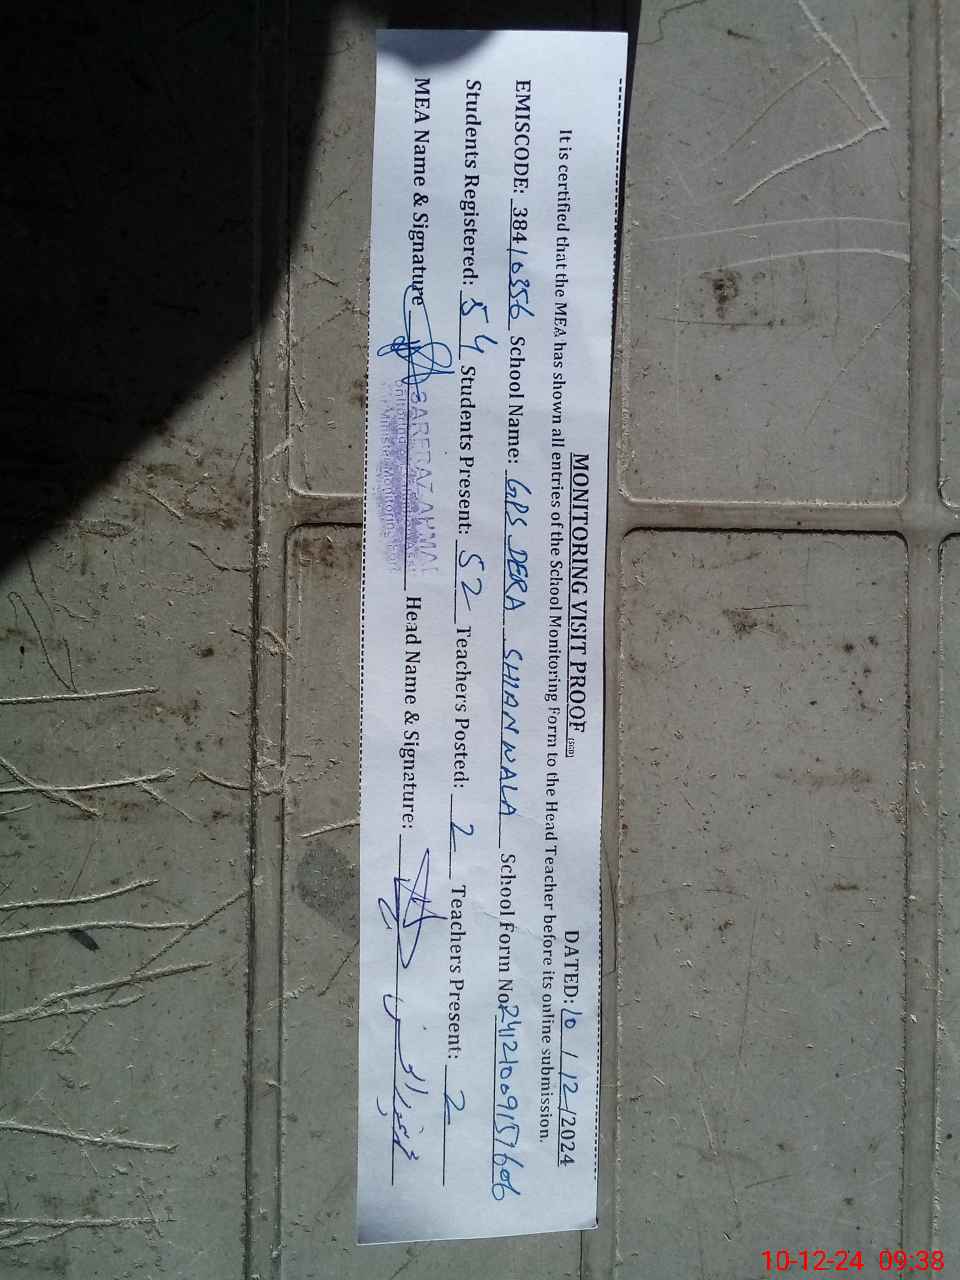 MONITORING VISIT PROOF (SGD)
DATED: 10 / 12 /2024
It is certified that the MEA has shown all entries of the School Monitoring Form to the Head Teacher before its online submission.
EMISCODE: 38410356 School Name: GPS DERA SHIANWALA School Form No: 24121009151606
Students Registered: 54 Students Present: 52 Teachers Posted: 2 Teachers Present: 2
MEA Name & Signature Head Name & Signature:
10-12-24 09:38